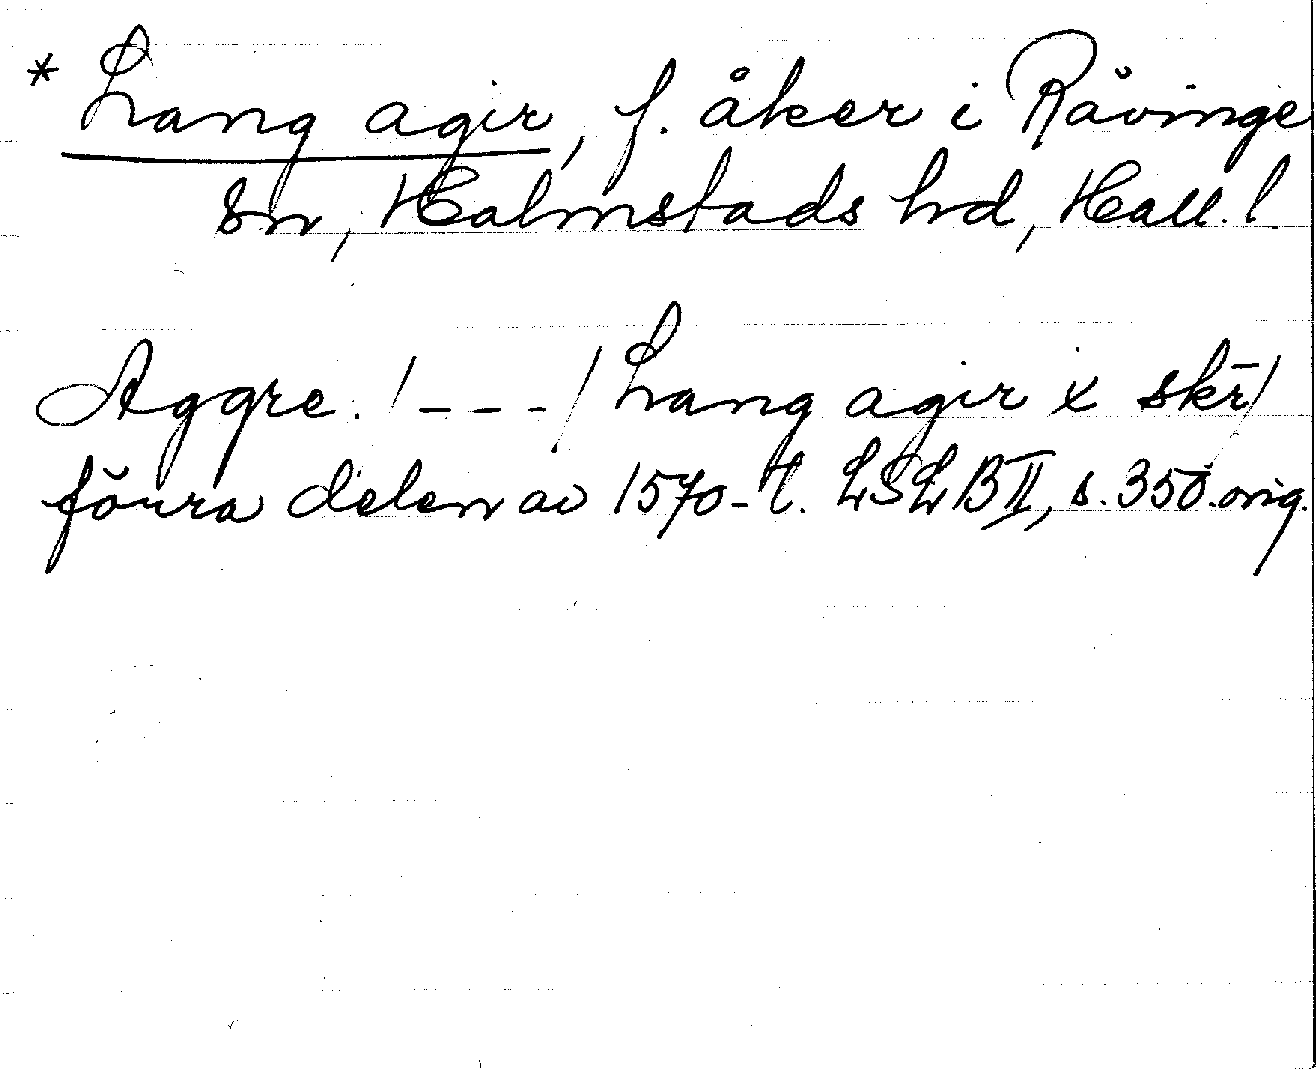 * Lang agir, f. åker i Råvinge
sn, Halmstads hrd, Hall. l.
Aggre. /---/ Lang agir x skr̄/
förra delen av 1570-t. LSLB II, s. 350. orig.